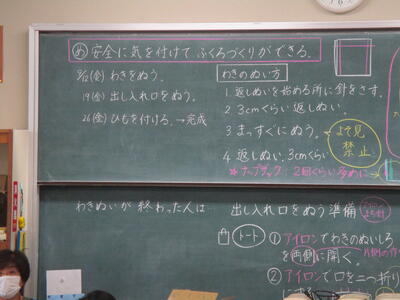 め 安全に気を付けて ふくろづくりができる。
(金) わきをぬう。
19(金) 出し入れ口をぬう。
26(金) ひもを付ける。→完成
わきのぬい方
1. 返しぬいを始める所に針をさす。
2. 3cmくらい返しぬい。
3. まっすぐにぬう。
よそ見
禁止
4. 返しぬい。3cmくらい
★ナップザック：2回くらい多めに
わきぬいが終わった人は
出し入れ口をぬう準備
トート
① アイロンでわきのぬいしろ
を両側に開く。
② アイロンで口を二つ折り